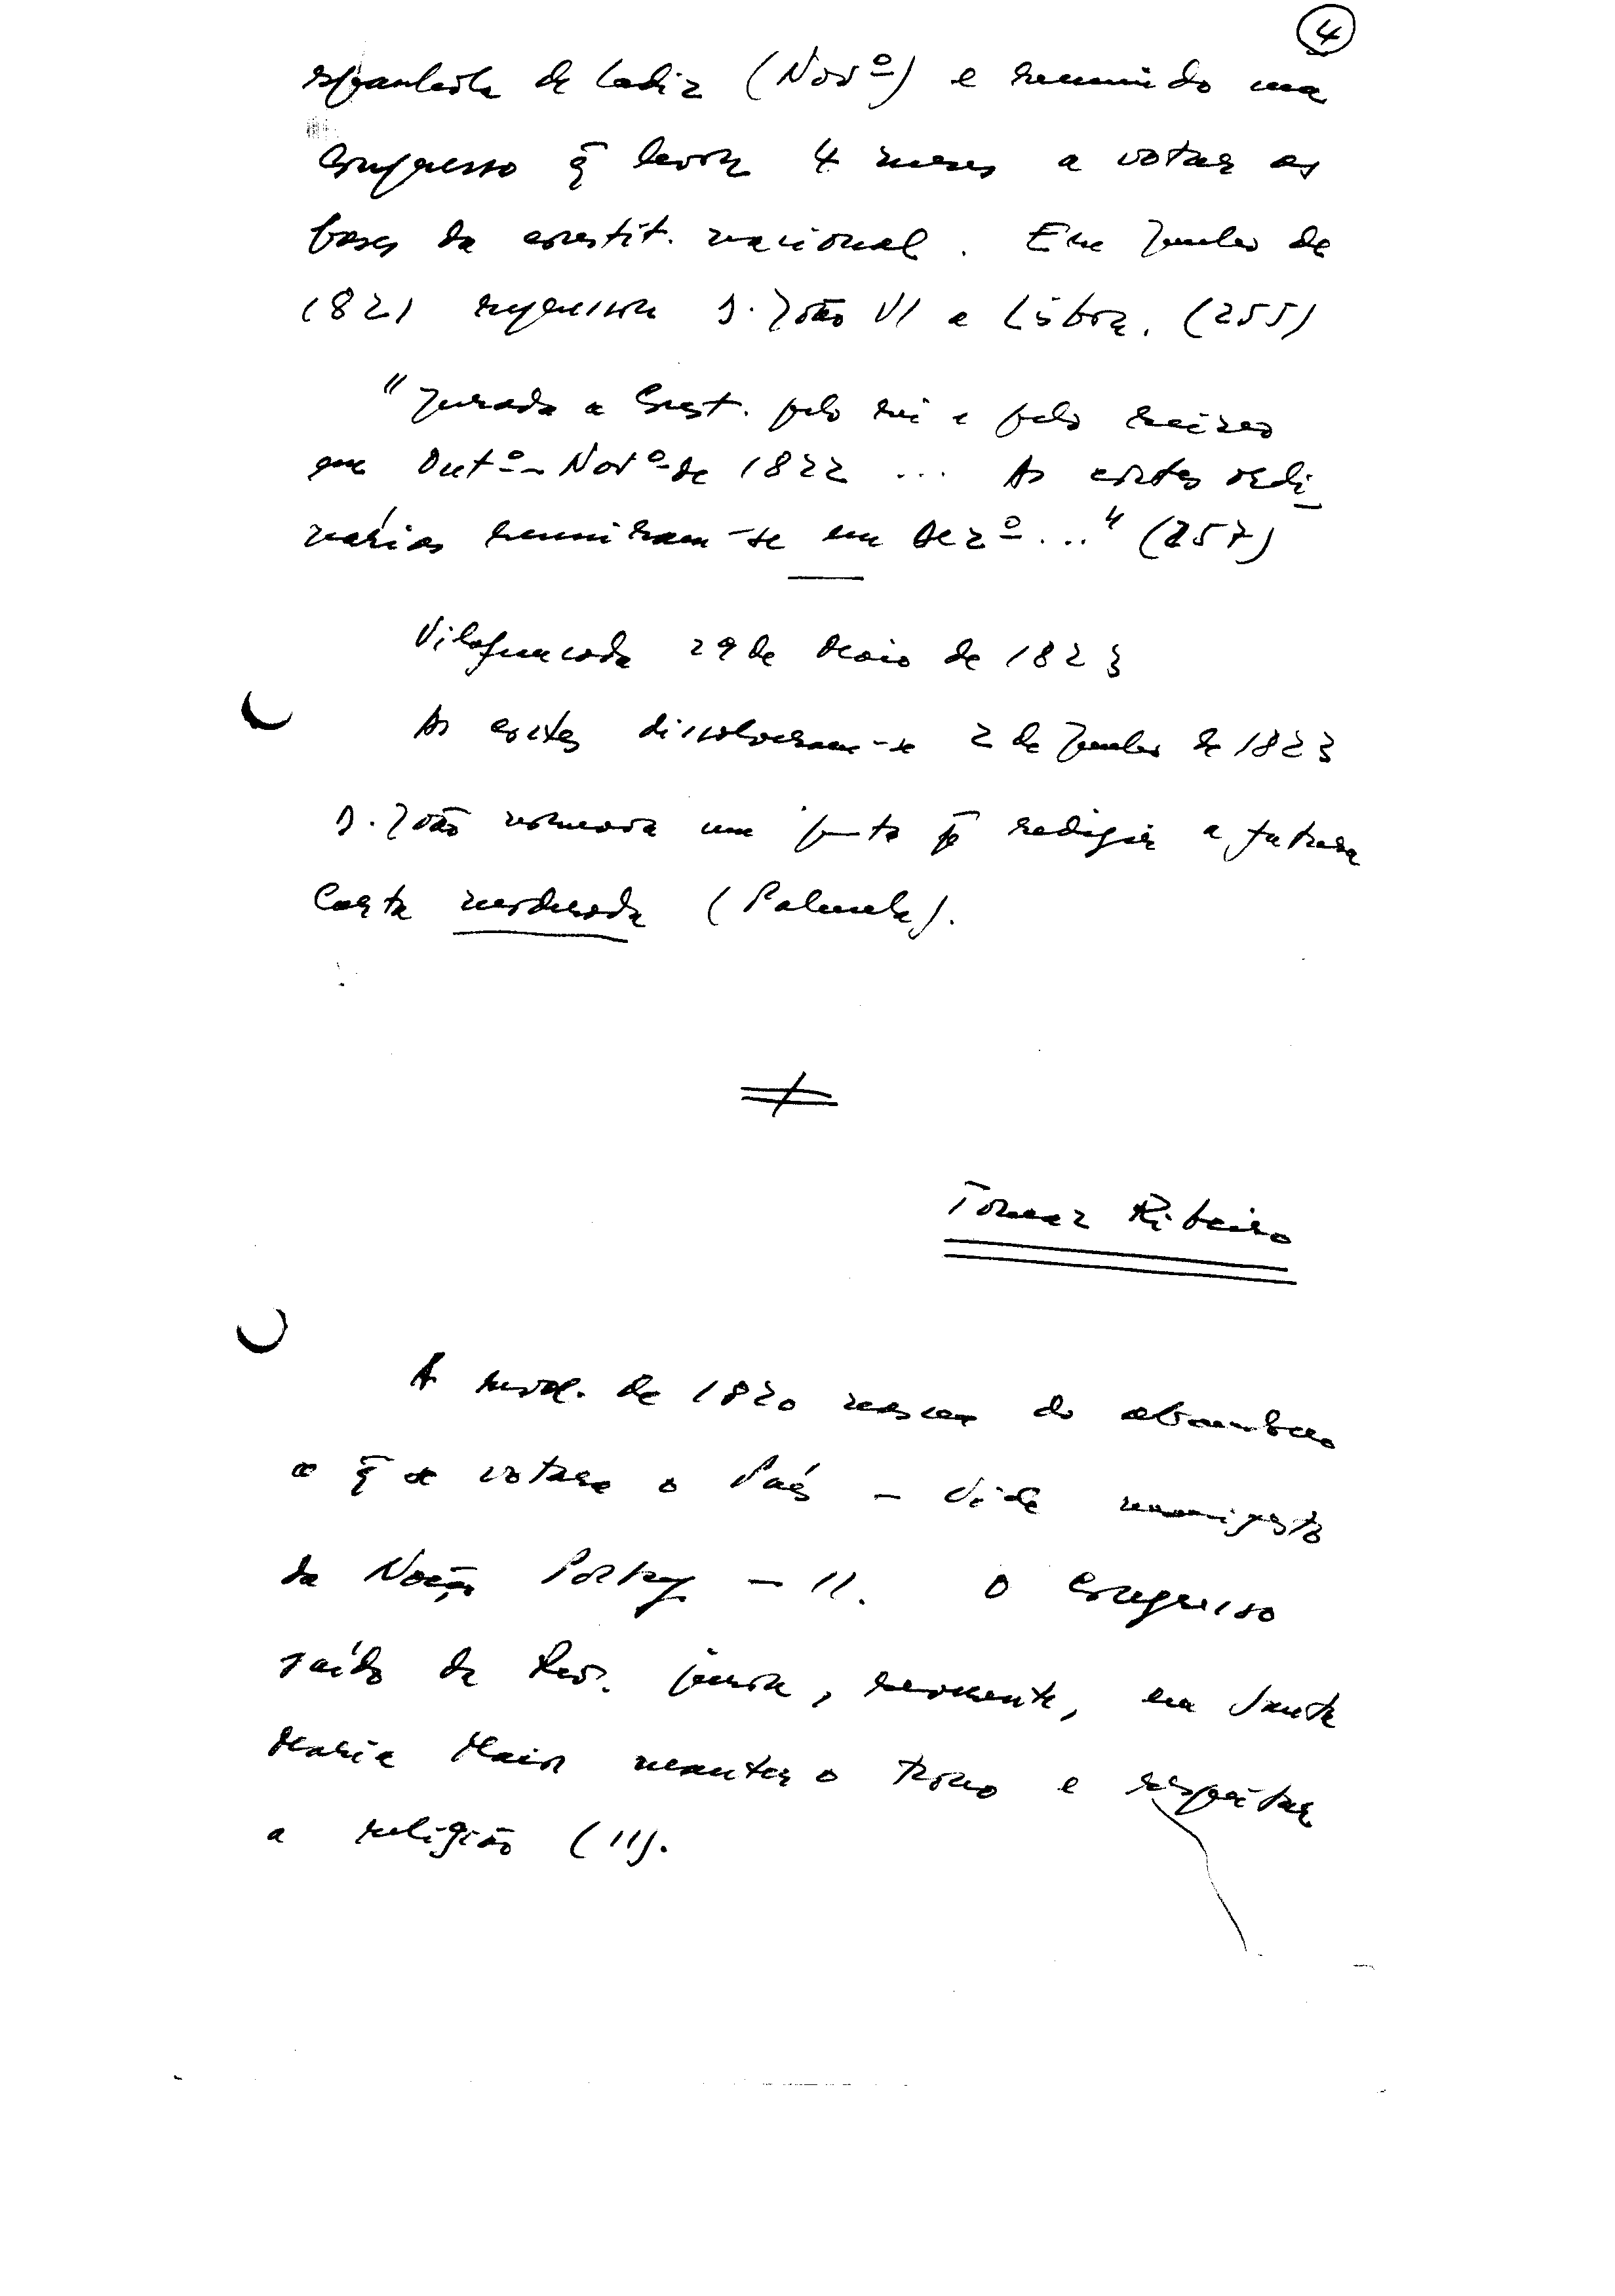 4
espanhola de Cadiz (Novº) e reunido um
Congresso q̃ levou 4 meses a votar as
bases da constit. nacional. Em Junho de
1821 regressou D. João VI a Lisboa. (255)
"Jurada a Const. pelo rei e pelo reino
em Outº-Novº de 1822 ... As cortes ordi-
nárias reuniram-se em Dezº..." (257)
Vilafrancada 29 de Maio de 1823
As cortes dissolveram-se 2 de Junho de 1823
D. João nomeava um junta p̃ redigir a futura
Carta moderada (Palmela).
Tomaz Ribeiro
A revol. de 1820 nasceu do abandono
a q̃ se votara o País – Vide manifesto
da Nação Portug – 11. O Congresso
saído da Rev. jurou, solenemente, em Santa
Maria Maior manter o trono e respeitar
a religião (11).